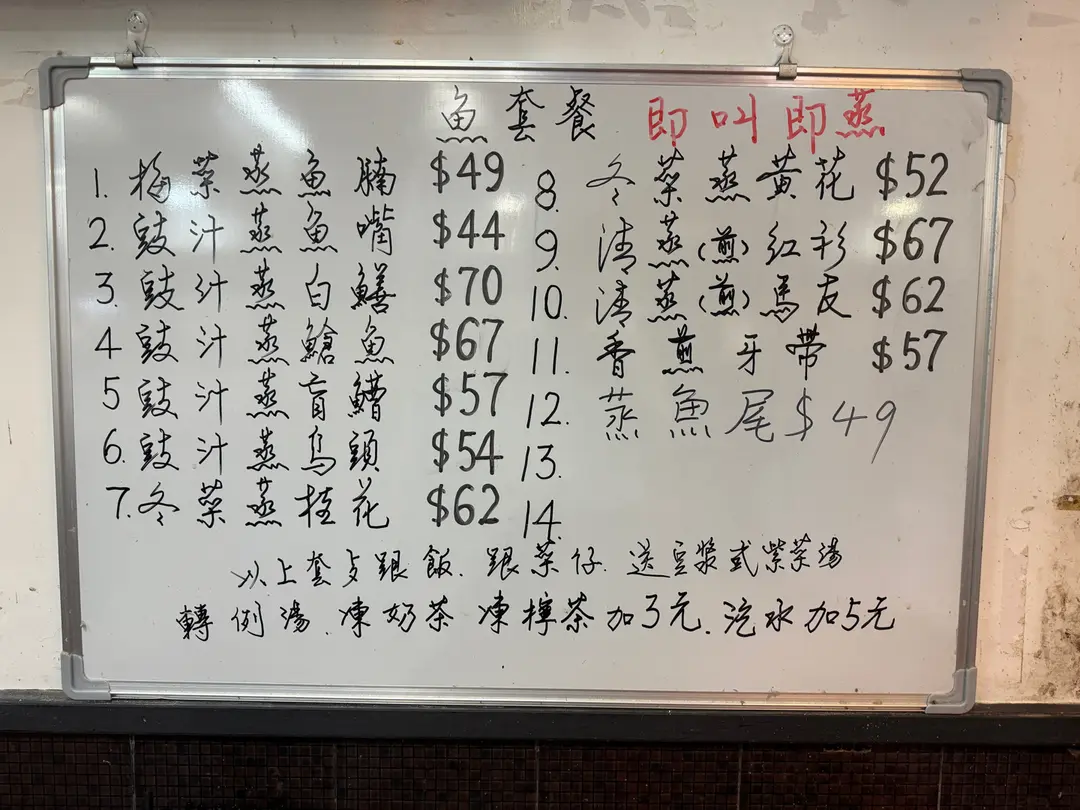 魚套餐 即叫即蒸
1. 梅菜蒸魚腩 $49
2. 豉汁蒸魚嘴 $44
3. 豉汁蒸白鱔 $70
4 豉汁蒸鯧魚 $67
5 豉汁蒸盲鰽 $57
6. 豉汁蒸烏頭 $54
7. 冬菜蒸桂花 $62
8. 冬菜蒸黃花 $52
9. 清蒸(煎)紅衫 $67
10. 清蒸(煎)馬友 $62
11. 香煎牙帶 $57
12. 蒸魚尾 $49
13.
14.
以上套歺跟飯. 跟菜仔. 送豆漿或紫菜湯
轉例湯. 凍奶茶 凍檸茶加3元. 汽水加5元